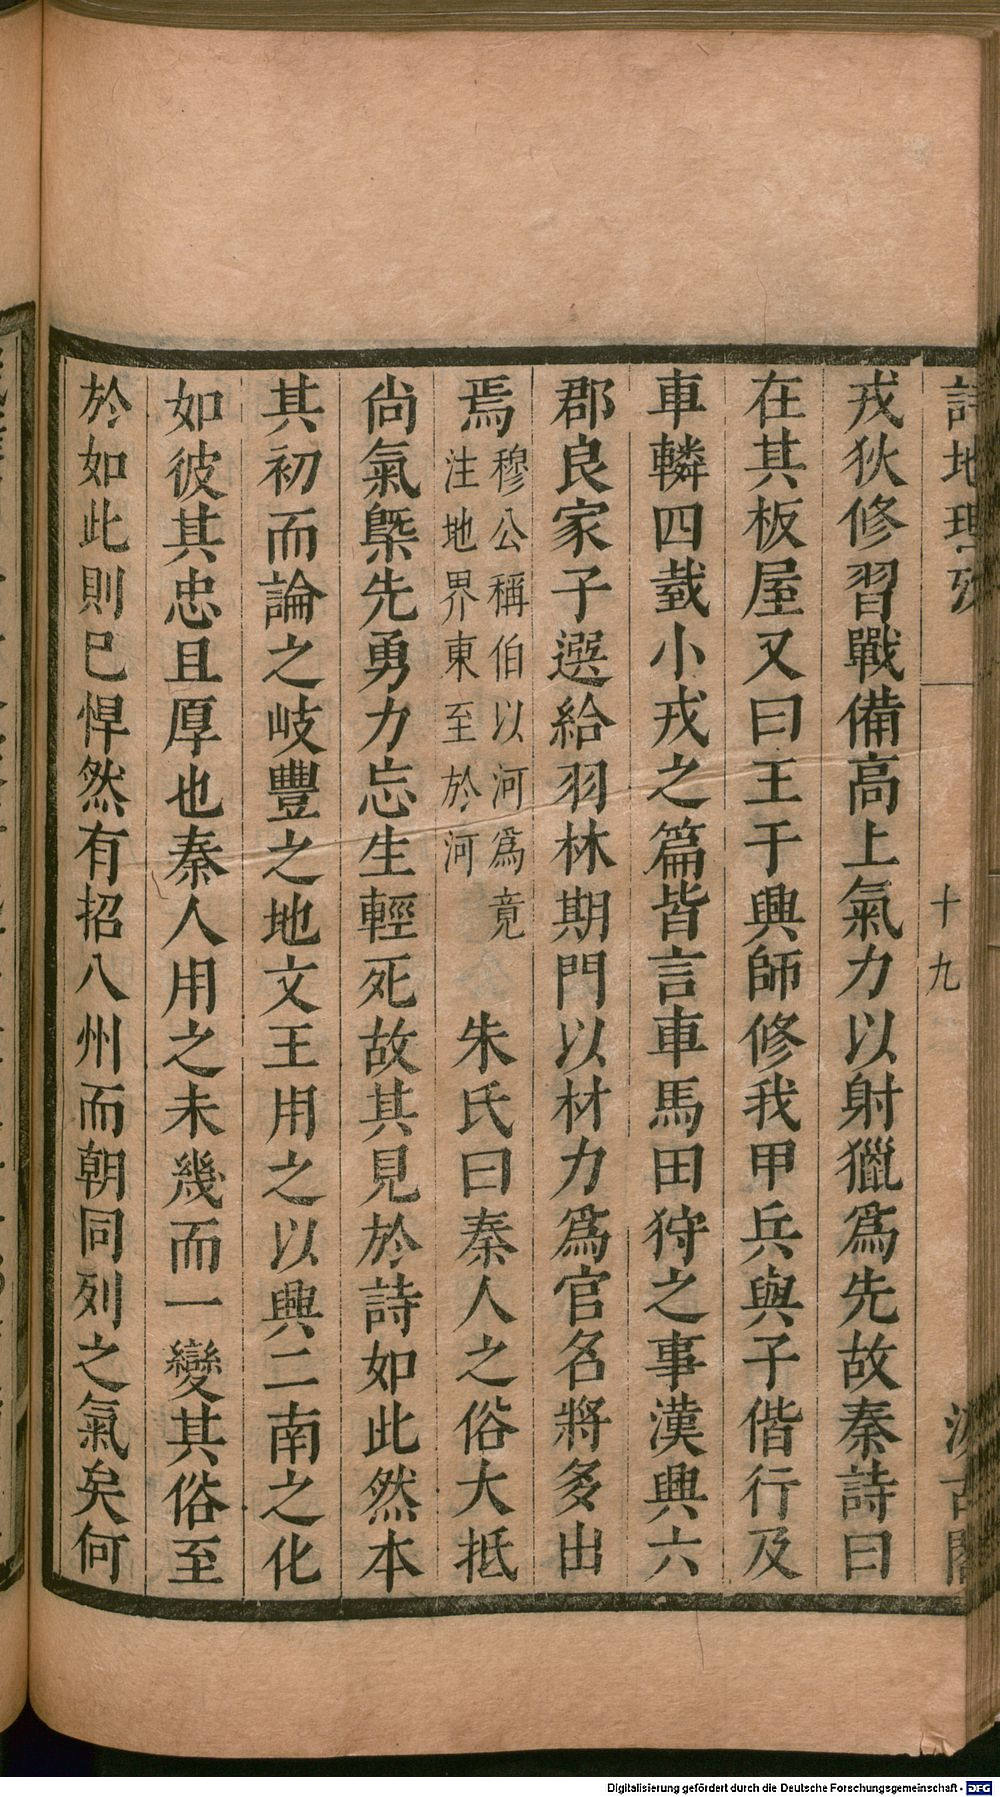 詩地理攷 十九 汲古閣
戎狄修習戰備高上氣力以射獵爲先故秦詩曰
在其板屋又曰王于興師修我甲兵與子偕行及
車轔四臷小戎之篇皆言車馬田狩之事漢興六
郡良家子選給羽林期門以材力爲官名將多出
焉穆公稱伯以河爲竟注地界東至於河 朱氏曰秦人之俗大抵
尚氣槩先勇力忘生輕死故其見於詩如此然本
其初而論之岐豐之地文王用之以興二南之化
如彼其忠且厚也秦人用之未幾而一變其俗至
於如此則已悍然有招八州而朝同列之氣矣何
Digitalisierung gefördert durch die Deutsche Forschungsgemeinschaft - DFG